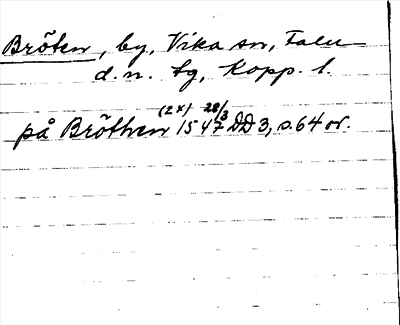 Bröten, by, Vika sn, Falu
d.n. tg, Kopp. l.
på Bröthen (2 x) 28/3 1547 DD 3, s. 64 or.